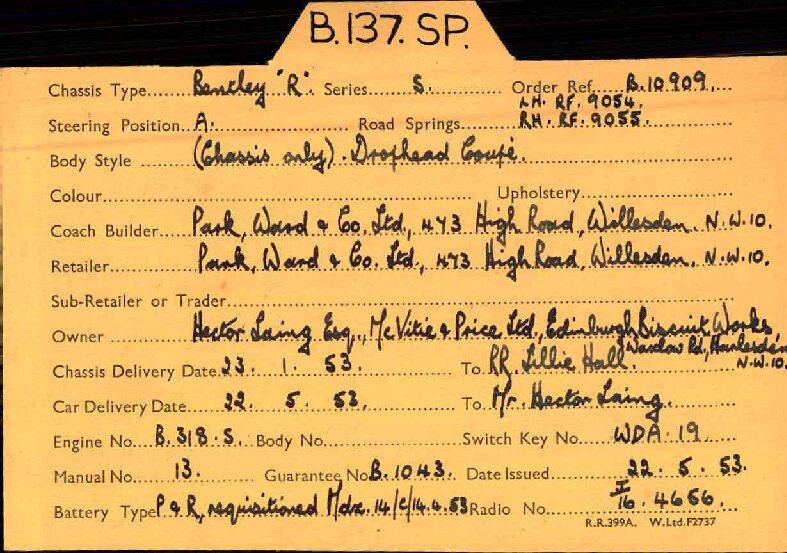 B.137.SP.
Chassis Type Bentley "R". Series S. Order Ref. B.10909.
LH. RF. 9054.
Steering Position A. Road Springs RH. RF. 9055.
Body Style (Chassis only). Drophead Coupé.
Colour Upholstery
Coach Builder Park, Ward & Co. Ltd., 473 High Road, Willesden. N.W.10.
Retailer Park, Ward & Co. Ltd., 473 High Road, Willesden. N.W.10.
Sub-Retailer or Trader
Owner Hector Laing Esq., McVitie & Price Ltd., Edinburgh Biscuit Works,
Waxlow Rd, Harlesden
N.W.10.
Chassis Delivery Date 23. 1. 53. To RR. Lillie Hall.
Car Delivery Date 22. 5. 53. To Mr. Hector Laing.
Engine No. B.318.S. Body No. Switch Key No. WDA.19
Manual No. 13. Guarantee No. B.1043. Date Issued 22. 5. 53.
Battery Type P & R, requisitioned Mdx. 14/C/14.4.53 Radio No. I/16. 4656.
R.R.399A. W.Ltd.F2737